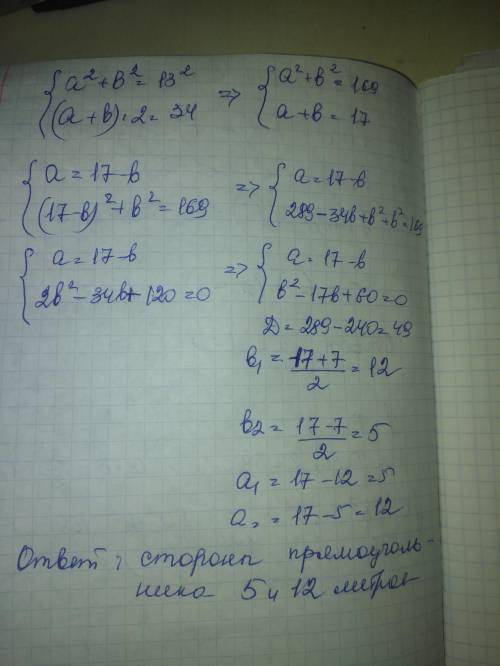 { a² + b² = 13²   => { a² + b² = 169
{ (a + b) · 2 = 34   { a + b = 17
{ a = 17 - b   => { a = 17 - b
{ (17 - b)² + b² = 169   { 289 - 34b + b² + b² = 169
{ a = 17 - b   => { a = 17 - b
{ 2b² - 34b + 120 = 0   { b² - 17b + 60 = 0
D = 289 - 240 = 49
b₁ = (17 + 7)/2 = 12
b₂ = (17 - 7)/2 = 5
a₁ = 17 - 12 = 5
a₂ = 17 - 5 = 12
Ответ: стороны прямоуголь-
ника 5 и 12 метров